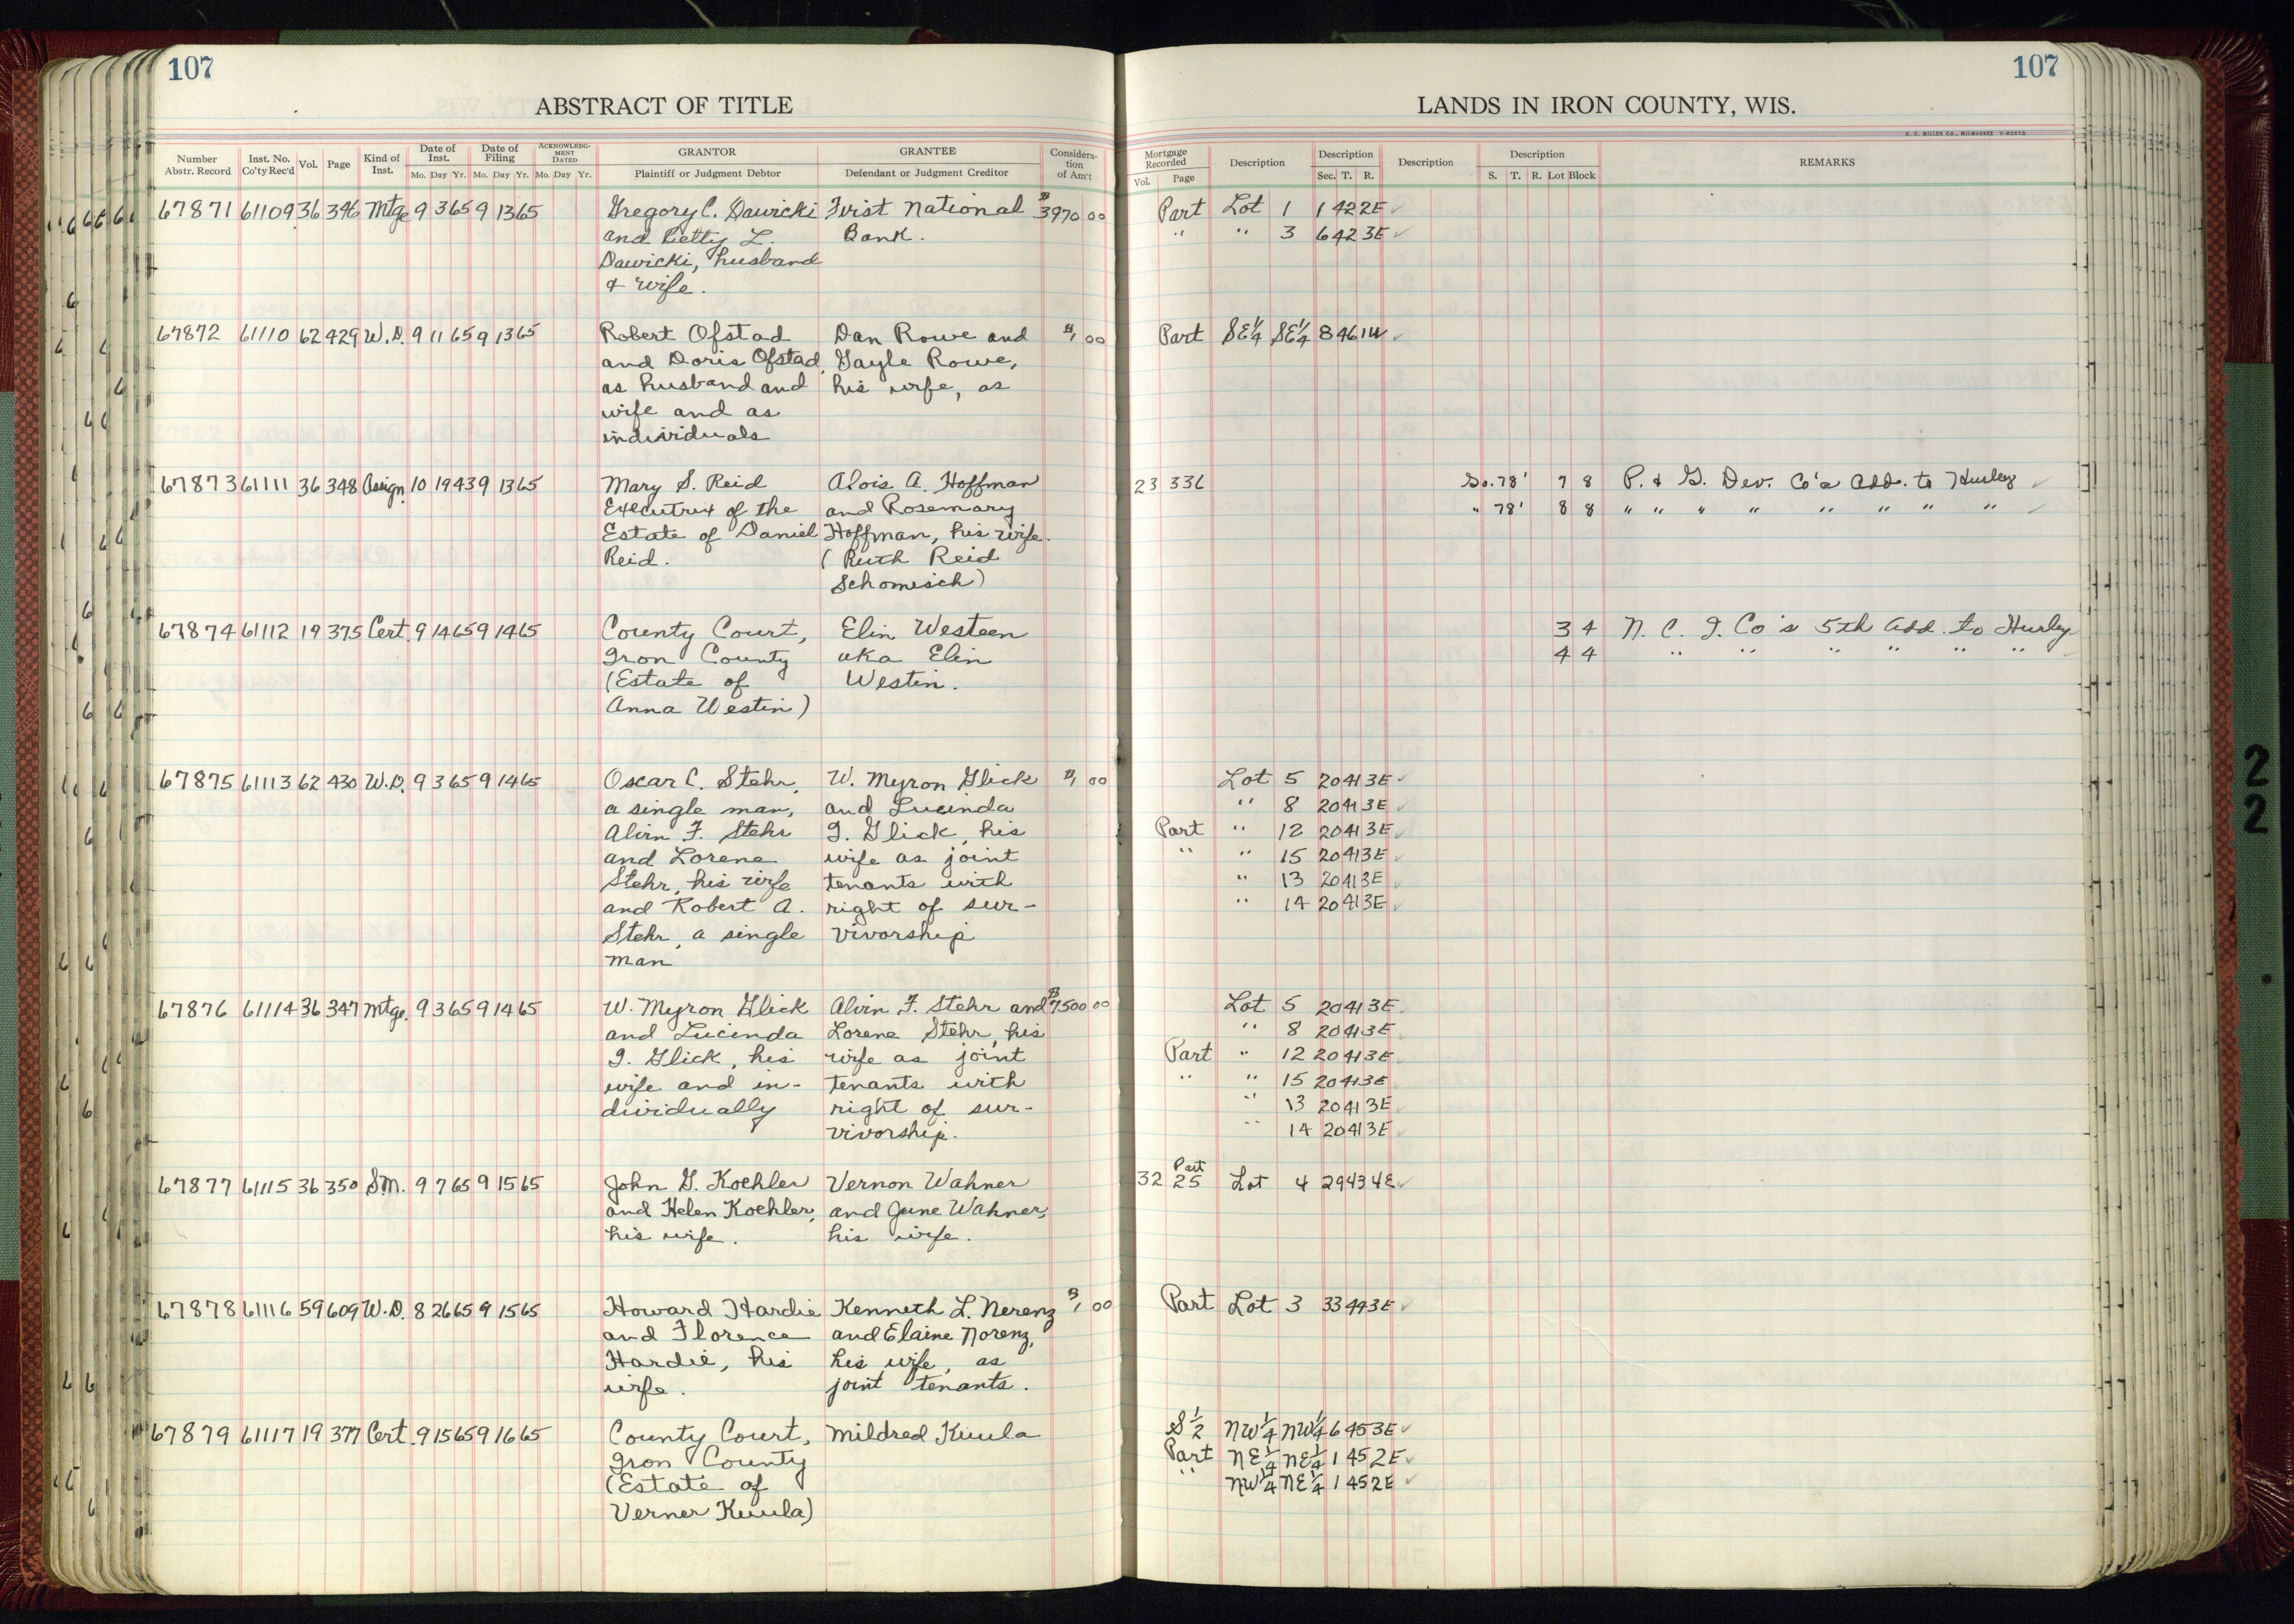 107
ABSTRACT OF TITLE
Number Abstr. Record Inst. No. Co'ty Rec'd Vol. Page Kind of Inst. Date of Inst. Mo. Day Yr. Date of Filing Mo. Day Yr. ACKNOWLEDGMENT DATED Mo. Day Yr. GRANTOR Plaintiff or Judgment Debtor GRANTEE Defendant or Judgment Creditor Consideration of Am't
67871 61109 36 346 Mtge 9 3 65 9 13 65 Gregory C. Dawicki First National $3970 00
and Betty L. Bank.
Dawicki, husband
& wife.
67872 61110 62 429 W.D. 9 11 65 9 13 65 Robert Ofstad Dan Rowe and $1 00
and Doris Ofstad, Gayle Rowe,
as husband and his wife, as
wife and as
individuals
67873 61111 36 348 Assign. 10 19 43 9 13 65 Mary S. Reid Alois A. Hoffman
Executrix of the and Rosemary
Estate of Daniel Hoffman, his wife.
Reid. (Ruth Reid
Schomisch)
67874 61112 19 375 Cert. 9 14 65 9 14 65 County Court, Elin Westeen
Iron County aka Elin
(Estate of Westin.
Anna Westin)
67875 61113 62 430 W.D. 9 3 65 9 14 65 Oscar C. Stehr, W. Myron Glick $1 00
a single man, and Lucinda
Alvin F. Stehr I. Glick, his
and Lorene wife as joint
Stehr, his wife tenants with
and Robert A. right of sur-
Stehr, a single vivorship
man
67876 61114 36 347 Mtge. 9 3 65 9 14 65 W. Myron Glick Alvin F. Stehr and $7500 00
and Lucinda Lorene Stehr, his
I. Glick, his wife as joint
wife and in- tenants with
dividually right of sur-
vivorship.
67877 61115 36 350 S.M. 9 7 65 9 15 65 John G. Koehler Vernon Wahner
and Helen Koehler, and June Wahner,
his wife. his wife.
67878 61116 59 609 W.D. 8 26 65 9 15 65 Howard Hardie Kenneth L. Nerenz $1 00
and Florence and Elaine Norenz,
Hardie, his his wife, as
wife. joint tenants.
67879 61117 19 377 Cert. 9 15 65 9 16 65 County Court, Mildred Kuula
Iron County
(Estate of
Verner Kuula)
107
LANDS IN IRON COUNTY, WIS.
H. C. MILLER CO., MILWAUKEE
Mortgage Recorded Vol. Page Description Description Sec. T. R. Description Description S. T. R. Lot Block REMARKS
Part Lot 1 1 42 2E ✓
" " 3 6 42 3E ✓
Part SE¼ SE¼ 8 46 1W ✓
23 336 So. 78' 7 8 P. & G. Dev. Co's Add. to Hurley ✓
" 78' 8 8 " " " " " " " " ✓
3 4 N. C. I. Co's 5th Add. to Hurley
4 4 " " " " " " ✓
Lot 5 20 41 3E ✓
" 8 20 41 3E ✓
Part " 12 20 41 3E ✓
" " 15 20 41 3E ✓
" 13 20 41 3E ✓
" 14 20 41 3E ✓
Lot 5 20 41 3E ✓
" 8 20 41 3E ✓
Part " 12 20 41 3E ✓
" " 15 20 41 3E ✓
" 13 20 41 3E ✓
" 14 20 41 3E ✓
32 25 Part Lot 4 29 43 4E ✓
Part Lot 3 33 44 3E ✓
S½ NW¼ NW¼ 6 45 3E ✓
Part NE¼ NE¼ 1 45 2E ✓
" NW¼ NE¼ 1 45 2E ✓
2
2